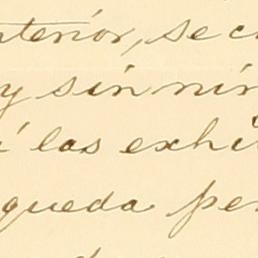 nterior, se c
y sin nin
i las exhi
queda per